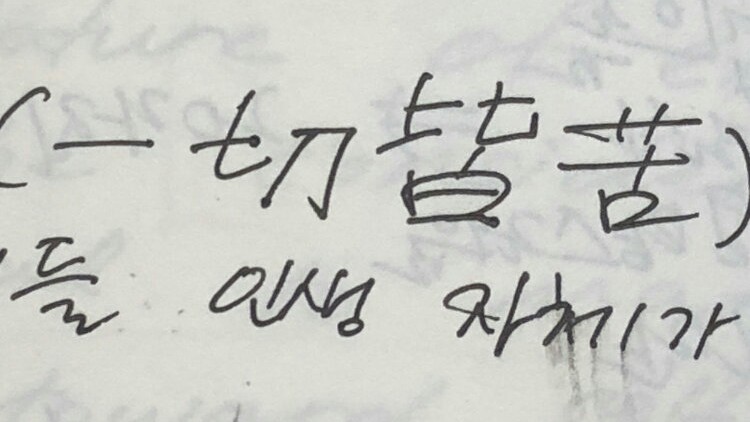 (一切皆苦)
들 인생 자체가